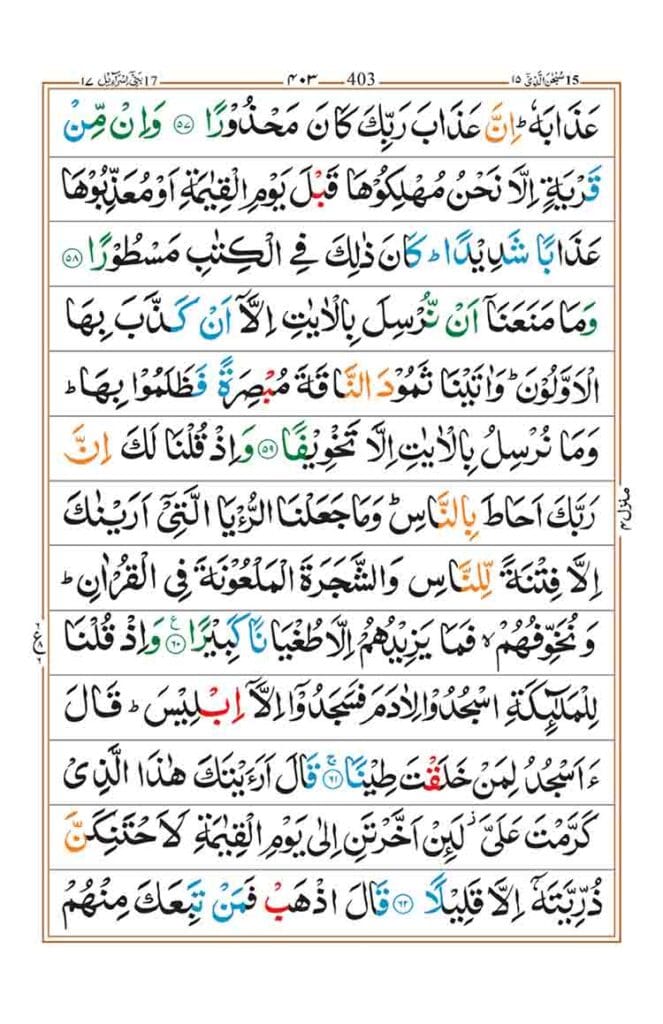 15 سُبْحٰنَ الَّذِیْۤ ۱۵ 403 ۴۰۳ 17 بَنِیْۤ اِسْرَآءِیْل ۱۷
عَذَابَهٗ ؕ اِنَّ عَذَابَ رَبِّكَ كَانَ مَحْذُوْرًا ۵۷ وَاِنْ مِّنْ
قَرْیَةٍ اِلَّا نَحْنُ مُهْلِكُوْهَا قَبْلَ یَوْمِ الْقِیٰمَةِ اَوْ مُعَذِّبُوْهَا
عَذَابًا شَدِیْدًا ؕ كَانَ ذٰلِكَ فِی الْكِتٰبِ مَسْطُوْرًا ۵۸
وَمَا مَنَعَنَاۤ اَنْ نُّرْسِلَ بِالْاٰیٰتِ اِلَّاۤ اَنْ كَذَّبَ بِهَا
الْاَوَّلُوْنَ ؕ وَاٰتَیْنَا ثَمُوْدَ النَّاقَةَ مُبْصِرَةً فَظَلَمُوْا بِهَا ؕ
وَمَا نُرْسِلُ بِالْاٰیٰتِ اِلَّا تَخْوِیْفًا ۵۹ وَاِذْ قُلْنَا لَكَ اِنَّ
رَبَّكَ اَحَاطَ بِالنَّاسِ ؕ وَمَا جَعَلْنَا الرُّءْیَا الَّتِیْۤ اَرَیْنٰكَ
اِلَّا فِتْنَةً لِّلنَّاسِ وَالشَّجَرَةَ الْمَلْعُوْنَةَ فِی الْقُرْاٰنِ ؕ
وَنُخَوِّفُهُمْ ۙ فَمَا یَزِیْدُهُمْ اِلَّا طُغْیَانًا كَبِیْرًا ۶۰ وَاِذْ قُلْنَا
لِلْمَلٰٓىِٕكَةِ اسْجُدُوْا لِاٰدَمَ فَسَجَدُوْۤا اِلَّاۤ اِبْلِیْسَ ؕ قَالَ
ءَاَسْجُدُ لِمَنْ خَلَقْتَ طِیْنًا ۶۱ قَالَ اَرَءَیْتَكَ هٰذَا الَّذِیْ
كَرَّمْتَ عَلَیَّ ؗ لَىِٕنْ اَخَّرْتَنِ اِلٰی یَوْمِ الْقِیٰمَةِ لَاَحْتَنِكَنَّ
ذُرِّیَّتَهٗۤ اِلَّا قَلِیْلًا ۶۲ قَالَ اذْهَبْ فَمَنْ تَبِعَكَ مِنْهُمْ
منزل ۴